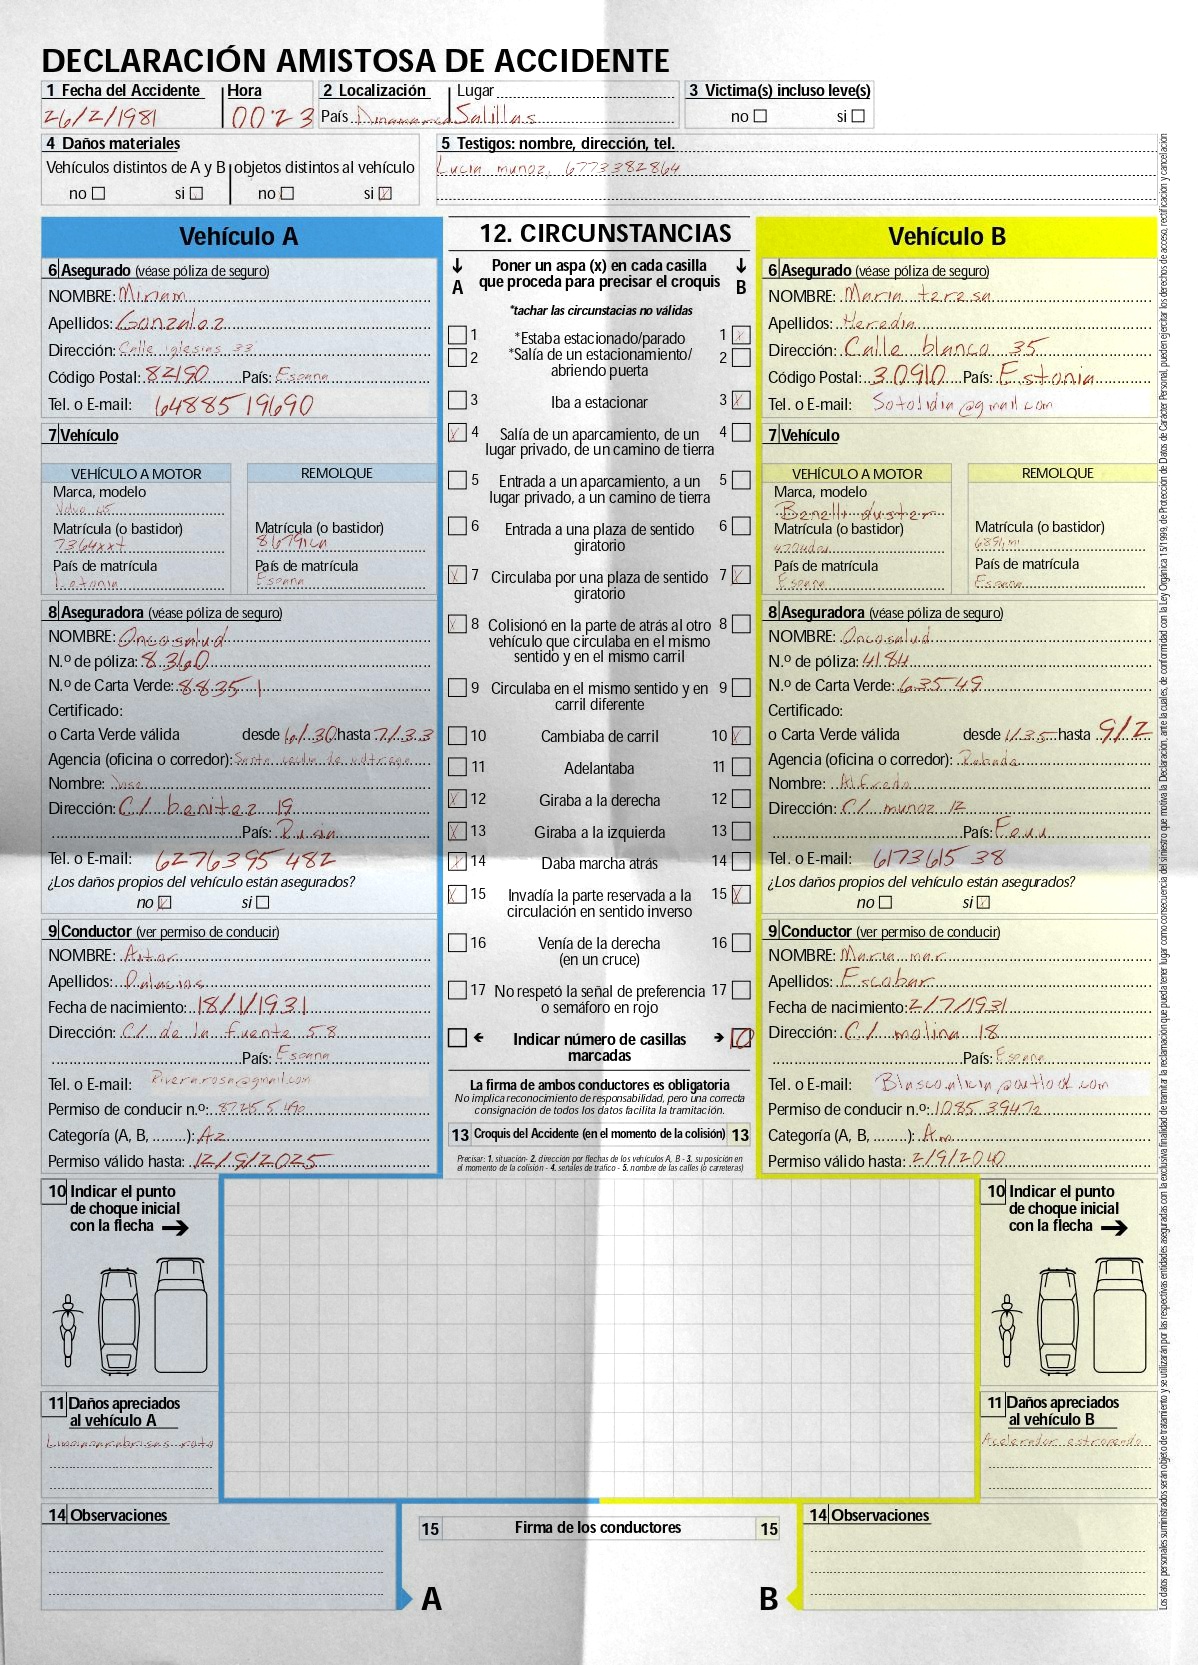 DECLARACIÓN AMISTOSA DE ACCIDENTE
1 Fecha del Accidente Hora 2 Localización Lugar 3 Victima(s) incluso leve(s)
26/2/1981 00:23 País Dinamarca Salillas no si
4 Daños materiales
Vehículos distintos de A y B objetos distintos al vehículo
no si no si
5 Testigos: nombre, dirección, tel.
Lucia munoz, 6773382864
Vehículo A
6 Asegurado (véase póliza de seguro)
NOMBRE: Miriam
Apellidos: Gonzalez
Dirección: Calle iglesias 33
Código Postal: 82190 País: Espana
Tel. o E-mail: 6488519690
7 Vehículo
VEHÍCULO A MOTOR REMOLQUE
Marca, modelo
Matrícula (o bastidor) Matrícula (o bastidor)
7364xxt
País de matrícula País de matrícula
Letonia Espana
8 Aseguradora (véase póliza de seguro)
NOMBRE: Oncosalud
N.º de póliza: 8360
N.º de Carta Verde: 88351
Certificado:
o Carta Verde válida desde 6/30 hasta 7/33
Agencia (oficina o corredor):
Nombre: Jose
Dirección: C/ benitez 19
País: Rusia
Tel. o E-mail: 6276395 482
¿Los daños propios del vehículo están asegurados?
no si
9 Conductor (ver permiso de conducir)
NOMBRE: Aitor
Apellidos: Palacios
Fecha de nacimiento: 18/1/1931
Dirección: C/ de la fuente 58
País: Espana
Tel. o E-mail: Rivera.rosa@gmail.com
Permiso de conducir n.º:
Categoría (A, B, ........): A2
Permiso válido hasta: 12/9/2025
12. CIRCUNSTANCIAS
Poner un aspa (x) en cada casilla
A que proceda para precisar el croquis B
*tachar las circunstacias no válidas
1 *Estaba estacionado/parado 1
2 *Salía de un estacionamiento/ 2
abriendo puerta
3 Iba a estacionar 3
4 Salía de un aparcamiento, de un 4
lugar privado, de un camino de tierra
5 Entrada a un aparcamiento, a un 5
lugar privado, a un camino de tierra
6 Entrada a una plaza de sentido 6
giratorio
7 Circulaba por una plaza de sentido 7
giratorio
8 Colisionó en la parte de atrás al otro 8
vehículo que circulaba en el mismo
sentido y en el mismo carril
9 Circulaba en el mismo sentido y en 9
carril diferente
10 Cambiaba de carril 10
11 Adelantaba 11
12 Giraba a la derecha 12
13 Giraba a la izquierda 13
14 Daba marcha atrás 14
15 Invadía la parte reservada a la 15
circulación en sentido inverso
16 Venía de la derecha 16
(en un cruce)
17 No respetó la señal de preferencia 17
o semáforo en rojo
Indicar número de casillas 10
marcadas
La firma de ambos conductores es obligatoria
No implica reconocimiento de responsabilidad, pero una correcta
consignación de todos los datos facilita la tramitación.
13 Croquis del Accidente (en el momento de la colisión) 13
Precisar: 1. situación- 2. dirección por flechas de los vehículos A, B - 3. su posición en
el momento de la colisión - 4. señales de tráfico - 5. nombre de las calles (o carreteras)
Vehículo B
6 Asegurado (véase póliza de seguro)
NOMBRE: Maria teresa
Apellidos: Heredia
Dirección: Calle blanco 35
Código Postal: 30910 País: Estonia
Tel. o E-mail: Sotolidia@gmail.com
7 Vehículo
VEHÍCULO A MOTOR REMOLQUE
Marca, modelo
Benelli duster
Matrícula (o bastidor) Matrícula (o bastidor)
País de matrícula País de matrícula
Espana Espana
8 Aseguradora (véase póliza de seguro)
NOMBRE: Oncosalud
N.º de póliza: 4184
N.º de Carta Verde: 63549
Certificado:
o Carta Verde válida desde 1/35 hasta 9/2
Agencia (oficina o corredor): Rabade
Nombre: Alfredo
Dirección: C/ munoz 12
País: Peru
Tel. o E-mail: 6173615 38
¿Los daños propios del vehículo están asegurados?
no si
9 Conductor (ver permiso de conducir)
NOMBRE: Maria mar
Apellidos: Escobar
Fecha de nacimiento: 2/7/1931
Dirección: C/ molina 18
País: Espana
Tel. o E-mail: Blasco.alicia@outlook.com
Permiso de conducir n.º:
Categoría (A, B, ........): Am
Permiso válido hasta: 2/9/2040
10 Indicar el punto
de choque inicial
con la flecha
11 Daños apreciados
al vehículo A
Limpiaparabrisas roto
14 Observaciones
15 Firma de los conductores 15
A B
10 Indicar el punto
de choque inicial
con la flecha
11 Daños apreciados
al vehículo B
Acelerador estropeado
14 Observaciones
Los datos personales suministrados serán objeto de tratamiento y se utilizarán por las respectivas entidades aseguradas con la exclusiva finalidad de tramitar la reclamación que pueda tener lugar como consecuencia del siniestro que motiva la Declaración, ante la cuales, de conformidad con la Ley Orgánica 15/1999, de Protección de Datos de Carácter Personal, pueden ejercitar los derechos de acceso, rectificación y cancelación